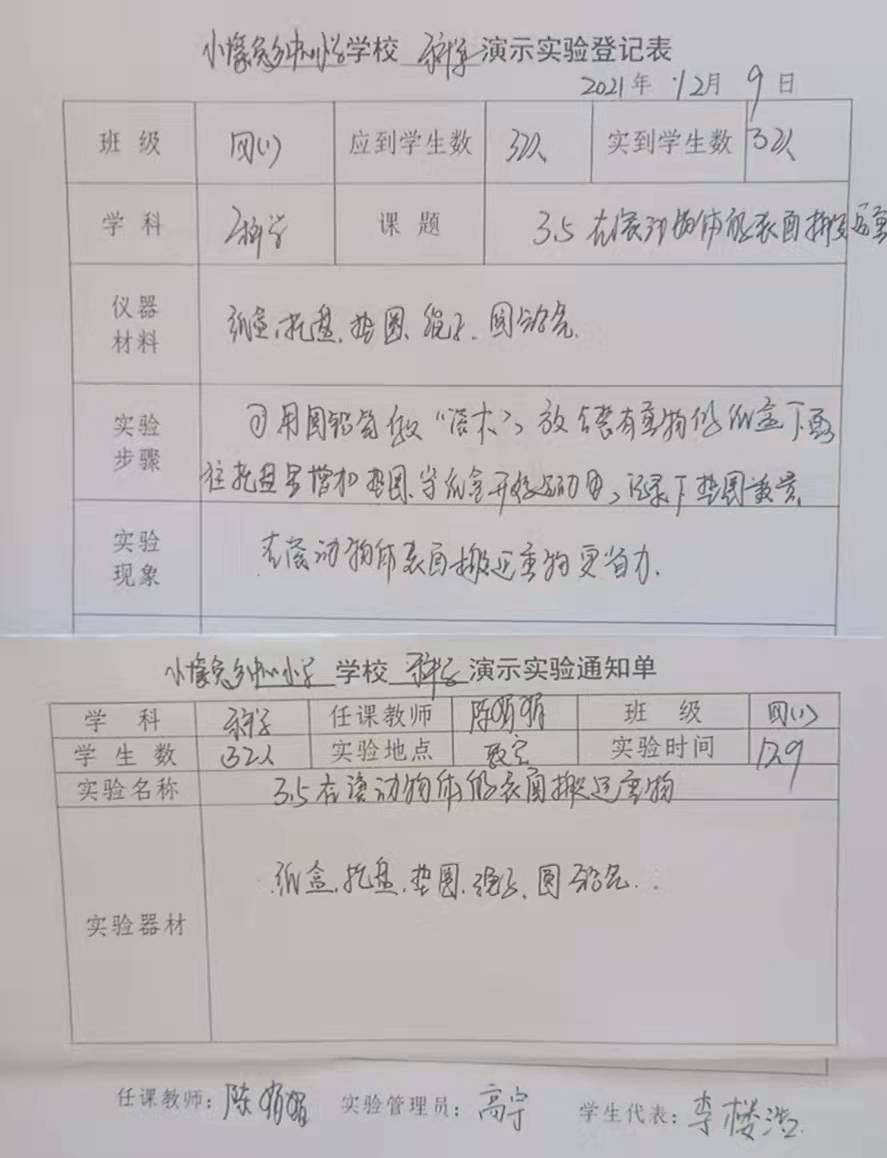 学校 科学 演示实验登记表
2021年 12月 9日
班级 四(1) 应到学生数 32人 实到学生数 32人
学科 科学 课题 3.5 在滚动物体的表面搬运重
仪器材料 纸盒、托盘、垫圈、绳子、圆铅笔.
实验步骤 ①用圆铅笔做“滚木”，放在装有重物的纸盒下面
往托盘里增加垫圈、当纸盒开始运动时，记录下垫圈数量.
实验现象 在滚动物体表面搬运重物更省力.
中心小学 学校 科学 演示实验通知单
学科 科学 任课教师 陈娟娟 班级 四(1)
学生数 32人 实验地点 教室 实验时间 12.9
实验名称 3.5 在滚动物体的表面搬运重物
实验器材 纸盒、托盘、垫圈、绳子、圆铅笔...
任课教师：陈娟娟 实验管理员：高宁 学生代表：李楼